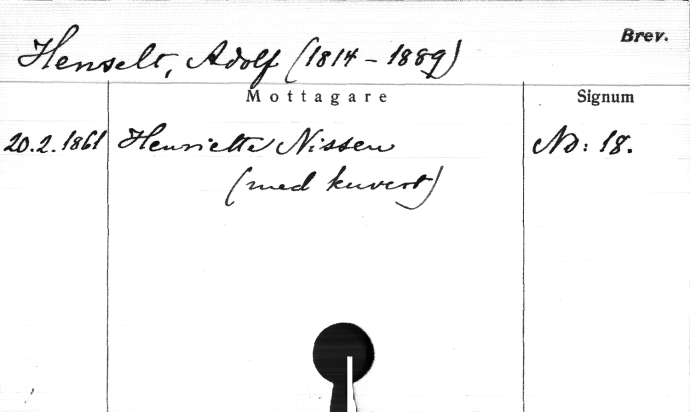 Brev.
Henselt, Adolf (1814-1889)
Mottagare Signum
20.2.1861 Henriette Nissen Nd: 18.
(med kuvert)